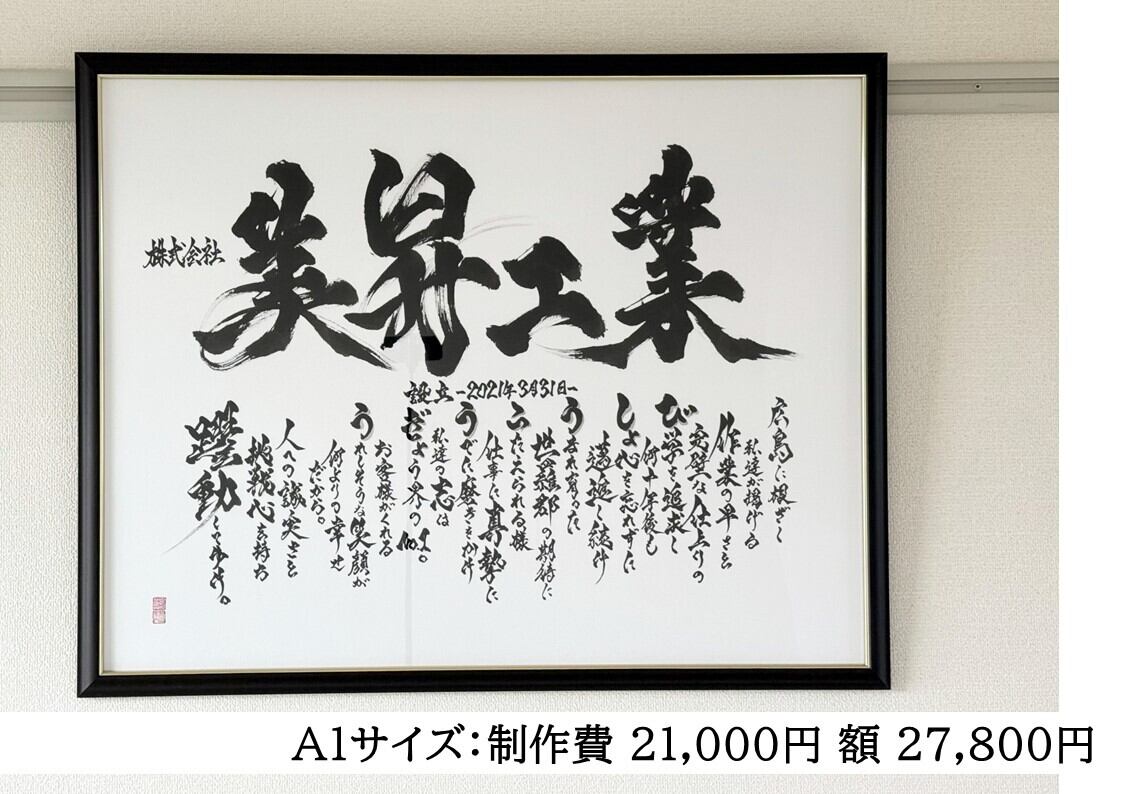 株式会社
美昇工業
設立-2021年3月31日-
広島に根ざし
私達が掲げる
作業の早さと
完璧な仕上りの
び学を追求し
何十年後も
しょ心を忘れずに
邁進し続け
うまれ育った
世羅郡の期待に
こたえられる様
仕事に真摯に
うでに磨きをかけ
私達の志は
ぎょう界のNo.1。
お客様がくれる
うれしそうな笑顔が
何よりの幸せ
だから。
人への誠実さと
挑戦心を持ち
躍動
A1サイズ:制作費 21,000円 額 27,800円